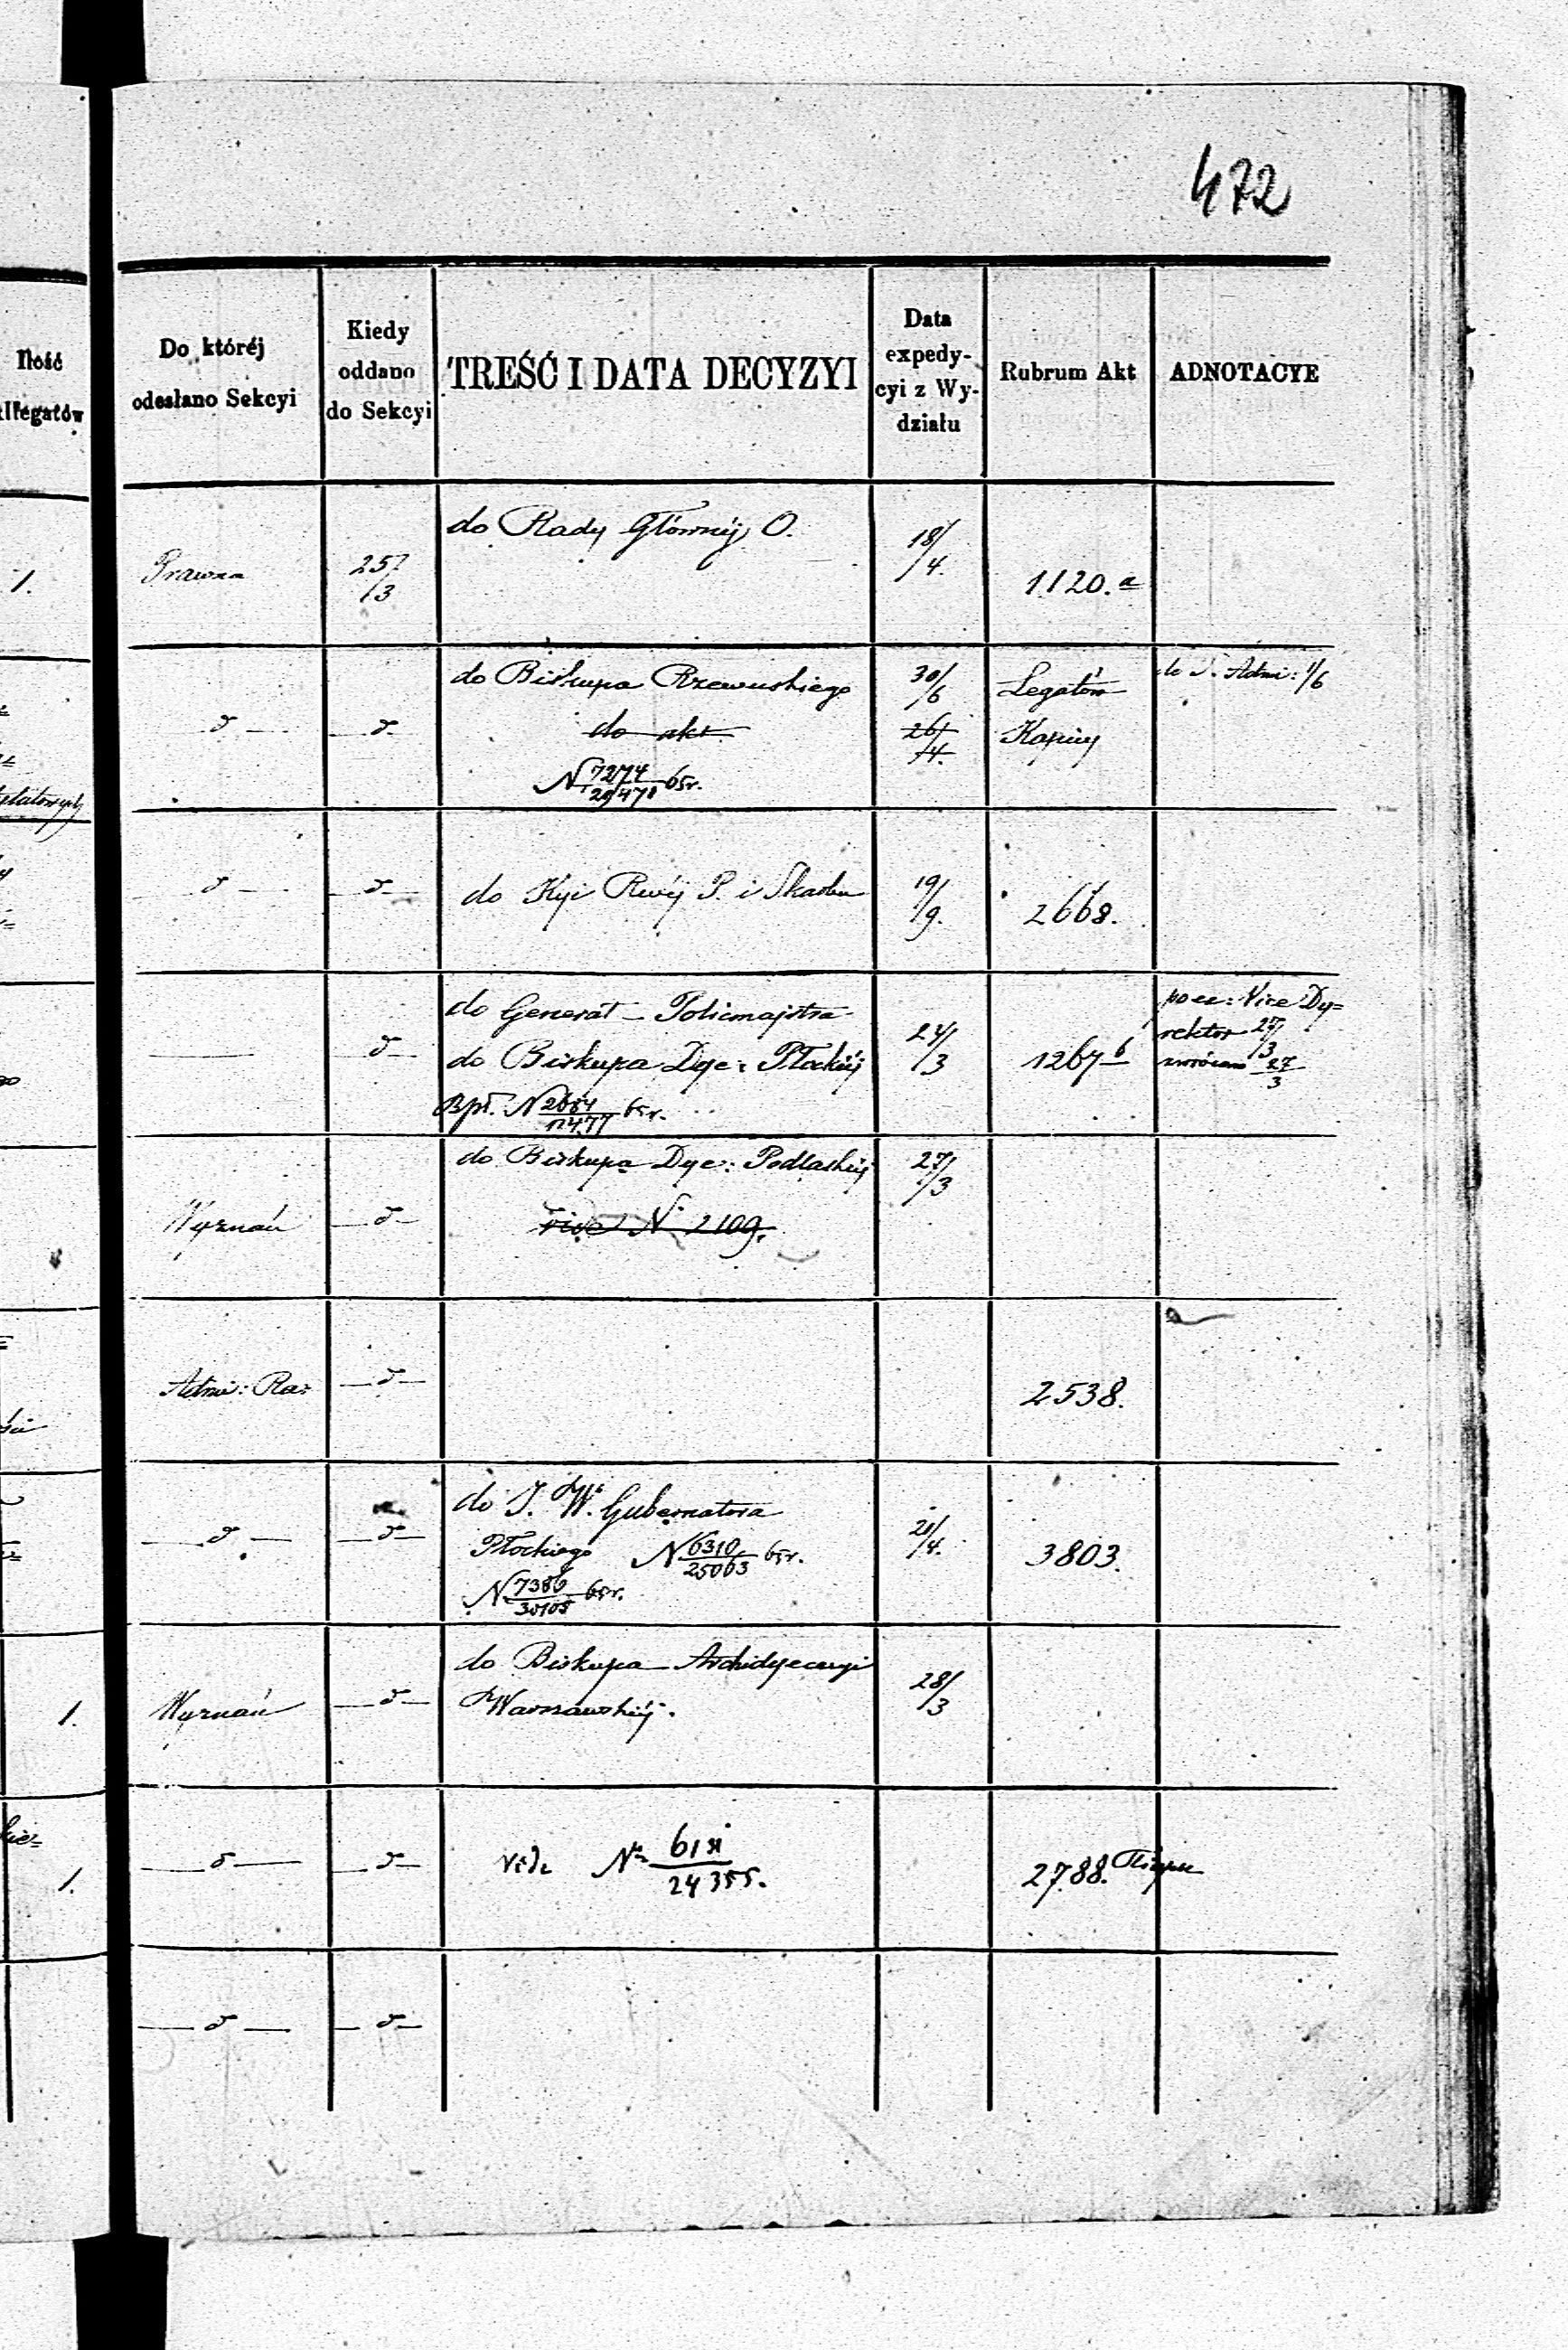 472
Ilość
Allegatów
Do któréj
odesłano Sekcyi
Kiedy
oddano
do Sekcyi
TREŚĆ I DATA DECYZYI
Data
expedy-
cyi z Wy-
działu
Rubrum Akt
ADNOTACYE
1.
Prawna
25/3
do Rady Głównéj O.
18/4.
1120.a
do Biskupa Rzewuskiego
do akt
N 7274/29478 65r.
30/6
26/4.
Legatów
do S. Admi: 1/6
do Kyi Rwéj P. i Skarbu
19/9.
2668.
do Generał-Policmajstra
do Biskupa Dye: Płockiéj
Bpł. N 2684/11477 65r.
24/3
1267 b
Vice Dy=
rektor 27/3
zwrócono 27/3
Wyznań
do Biskupa Dye: Podlaskiéj
vide N 2109.
27/3
Admi: Ra:
2538.
do J. W. Gubernatora
Płockiego N 6310/25063 65r.
N 7386/30105 65r.
21/4.
3803.
1.
Wyznań
do Biskupa Archidyecezyi
Warszawskiéj.
28/3
1.
vide
2788.